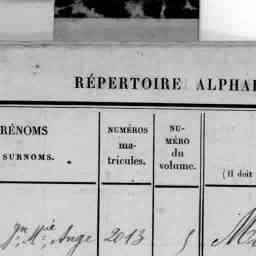 RÉPERTOIRE ALPHA
RÉNOMS
SURNOMS.
NUMÉROS
ma-
tricules.
NU-
MÉRO
du
volume.
(Il doit
Jn Mie Ange 2013 5